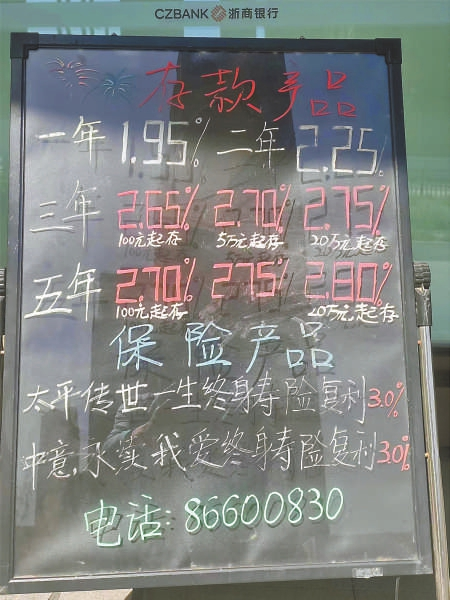 CZBANK 浙商银行
存款产品
一年 1.95% 二年 2.25%
三年 2.65% 2.70% 2.75%
100元起存 5万元起存 20万元起存
五年 2.70% 2.75% 2.80%
100元起存 20万元起存
保险产品
太平传世一生终身寿险复利3.0%
中意永续我爱终身寿险复利3.0%
电话:86600830